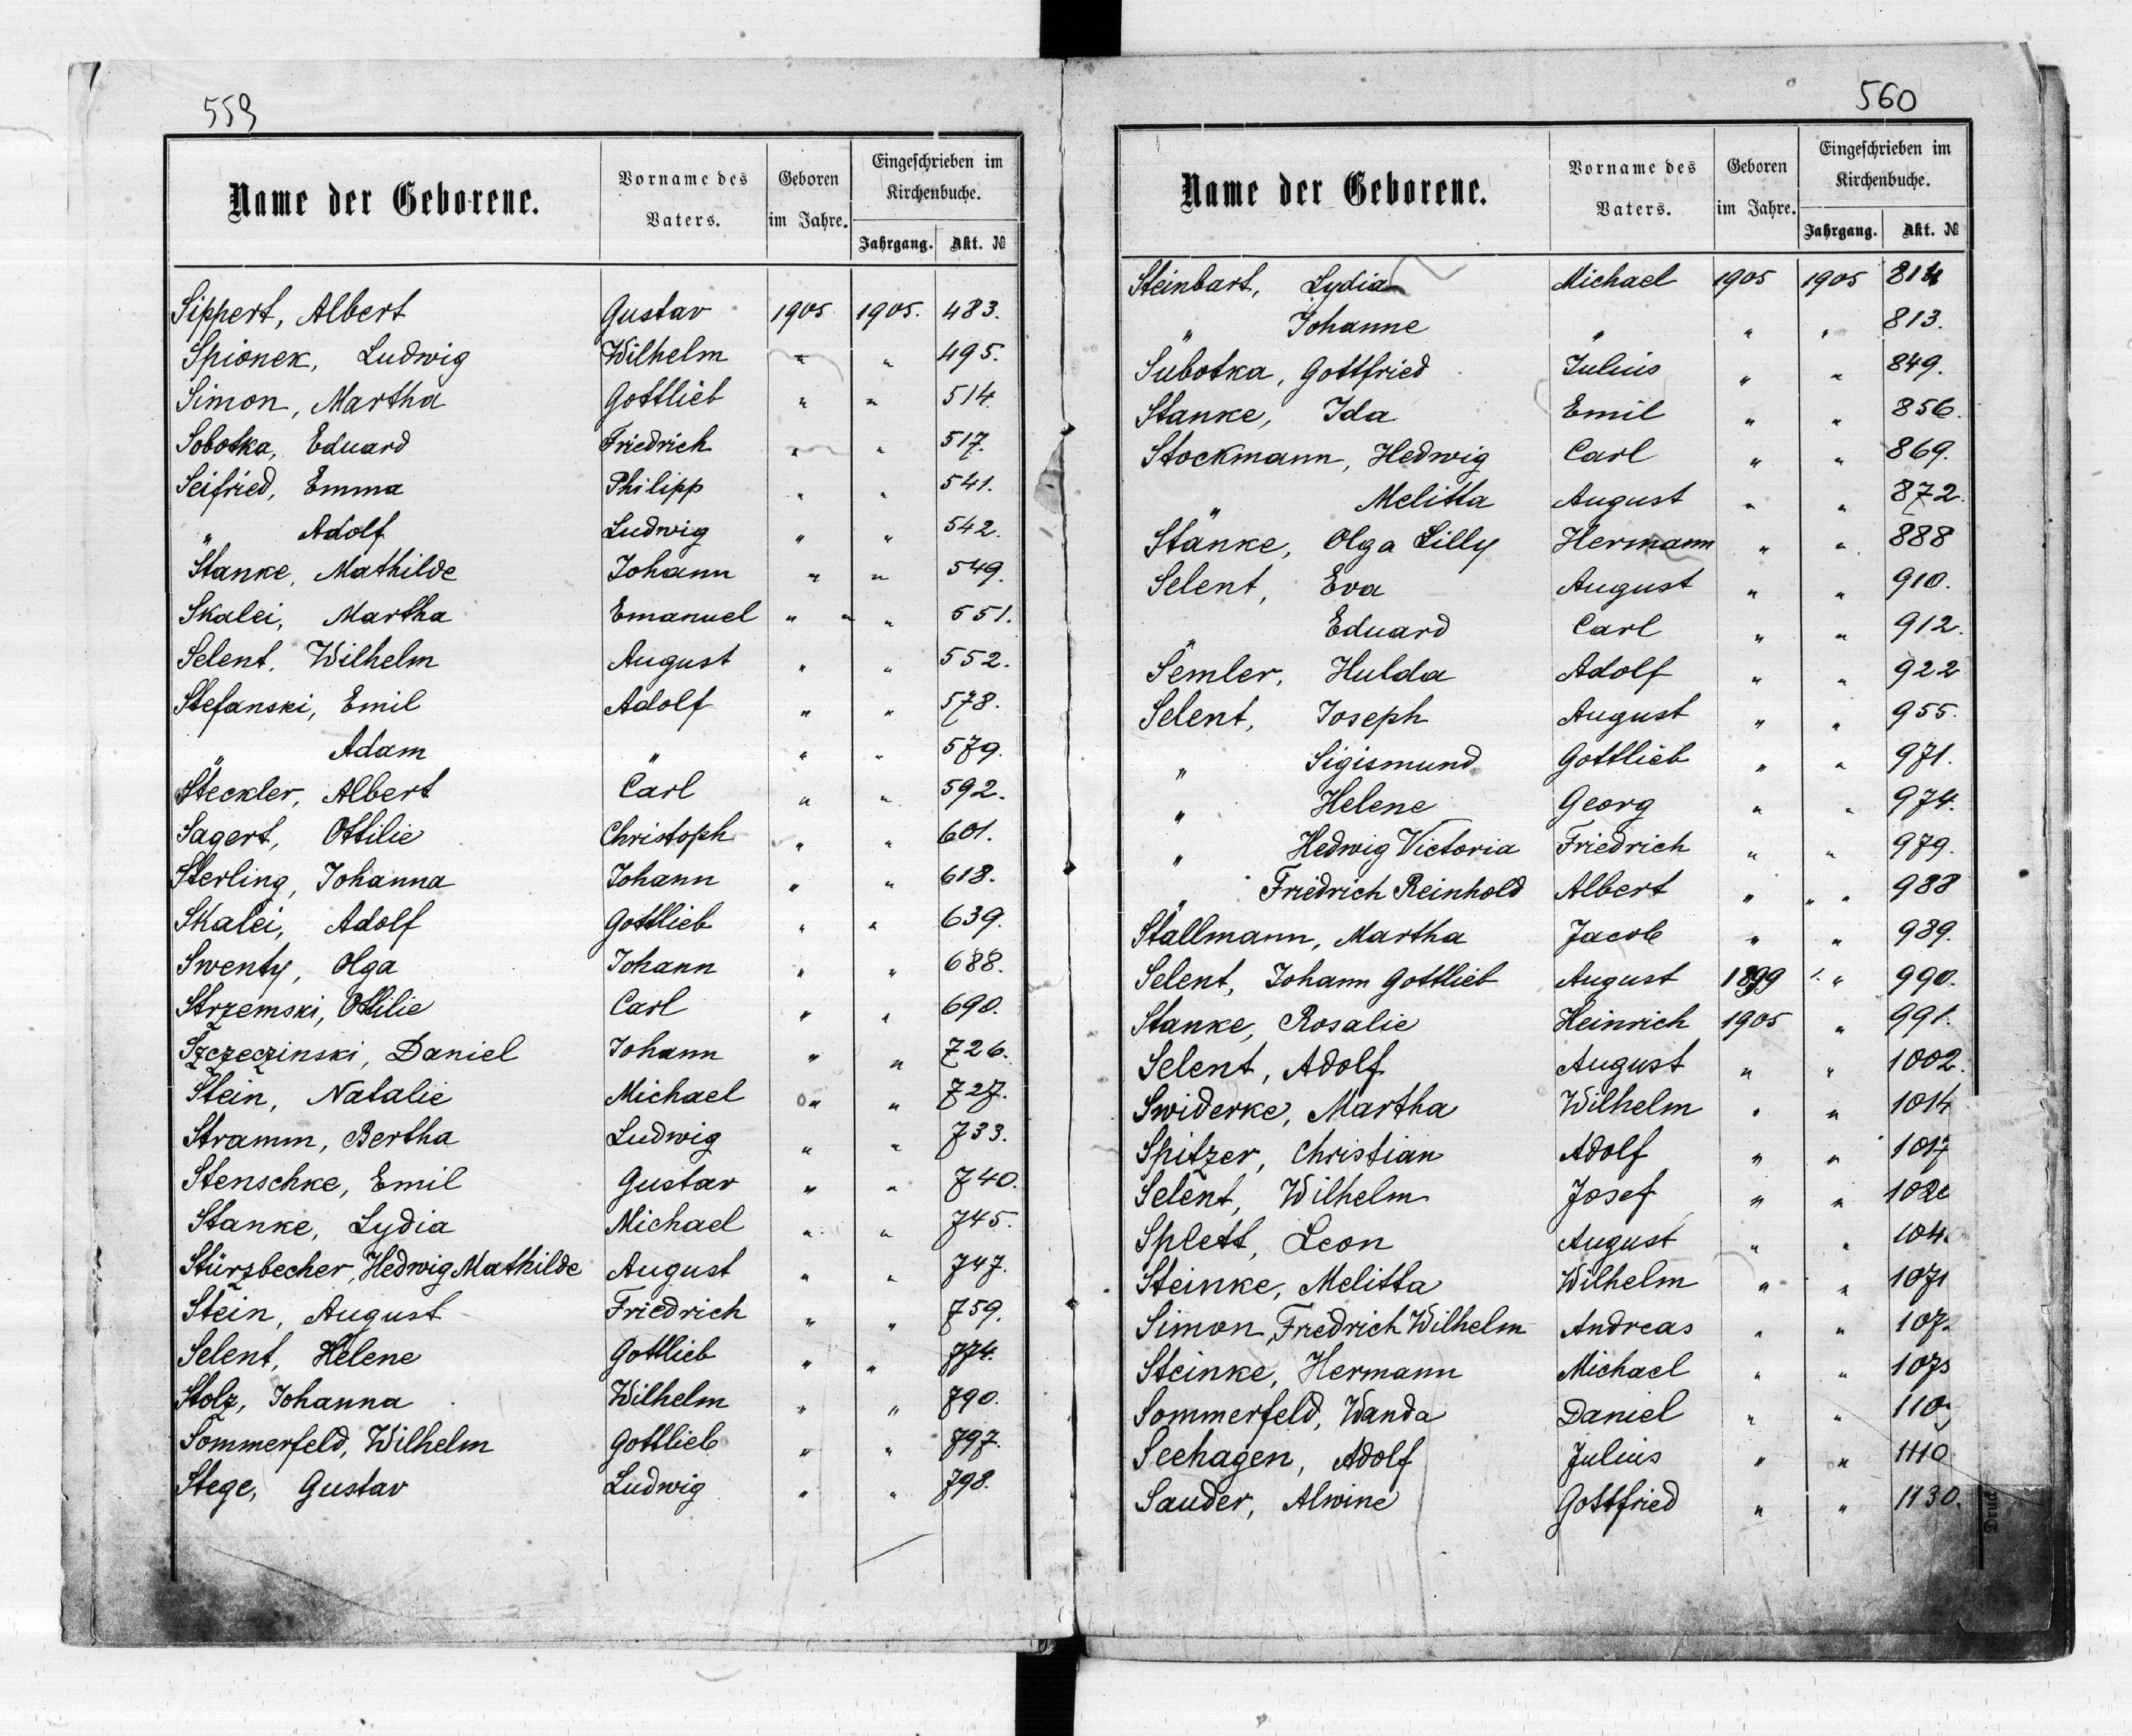 559
Name der Geborene. Vorname des Vaters. Geboren im Jahre. Eingeschrieben im Kirchenbuche. Jahrgang. Akt. №
Sippert, Albert Gustav 1905 1905. 483.
Spionek, Ludwig Wilhelm " " 495.
Simon, Martha Gottlieb " " 514.
Sobotka, Eduard Friedrich " " 517.
Seifried, Emma Philipp " " 541.
" Adolf Ludwig " " 542.
Stanke, Mathilde Johann " " 549.
Skalei, Martha Emanuel " " 551.
Selent, Wilhelm August " " 552.
Stefanski, Emil Adolf " " 578.
" Adam " " " 579.
Steckler, Albert Carl " " 592.
Sagert, Ottilie Christoph " " 601.
Sterling, Johanna Johann " " 618.
Skalei, Adolf Gottlieb " " 639.
Swenty, Olga Johann " " 688.
Strzemski, Ottilie Carl " " 690.
Szczeczinski, Daniel Johann " " 726.
Stein, Natalie Michael " " 727.
Stramm, Bertha Ludwig " " 733.
Stenschke, Emil Gustav " " 740.
Stanke, Lydia Michael " " 745.
Stürzbecher, Hedwig Mathilde August " " 747.
Stein, August Friedrich " " 759.
Selent, Helene Gottlieb " " 774.
Stolz, Johanna Wilhelm " " 790.
Sommerfeld, Wilhelm Gottlieb " " 797.
Stege, Gustav Ludwig " " 798.
560
Name der Geborene. Vorname des Vaters. Geboren im Jahre. Eingeschrieben im Kirchenbuche. Jahrgang. Akt. №
Steinbart, Lydia Michael 1905 1905 814
" Johanne " " " 813.
Subotka, Gottfried Julius " " 849.
Stanke, Ida Emil " " 856.
Stockmann, Hedwig Carl " " 869.
" Melitta August " " 872.
Stanke, Olga Lilly Hermann " " 888
Selent, Eva August " " 910.
" Eduard Carl " " 912.
Semler, Hulda Adolf " " 922
Selent, Joseph August " " 955.
" Sigismund Gottlieb " " 971.
" Helene Georg " " 974.
" Hedwig Victoria Friedrich " " 979.
" Friedrich Reinhold Albert " " 988
Stallmann, Martha Jacob " " 989.
Selent, Johann Gottlieb August 1899 " 990.
Stanke, Rosalie Heinrich 1905 " 991.
Selent, Adolf August " " 1002.
Swiderke, Martha Wilhelm " " 1014
Spitzer, Christian Adolf " " 1017
Selent, Wilhelm Josef " "
Splett, Leon August " "
Steinke, Melitta Wilhelm " " 1071
Simon, Friedrich Wilhelm Andreas " "
Steinke, Hermann Michael " "
Sommerfeld, Wanda Daniel " "
Seehagen, Adolf Julius " " 1110
Sauder, Alwine Gottfried " " 1130.
Druck